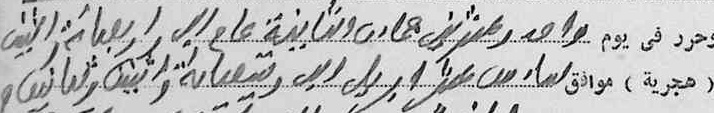 وحرر فى يوم واحد وعشرين جمادى الثانية عام الف واربعمائة واثنين
( هجرية ) موافق سادس عشر ابريل الف وتسعمائة واثنين وثمانين م